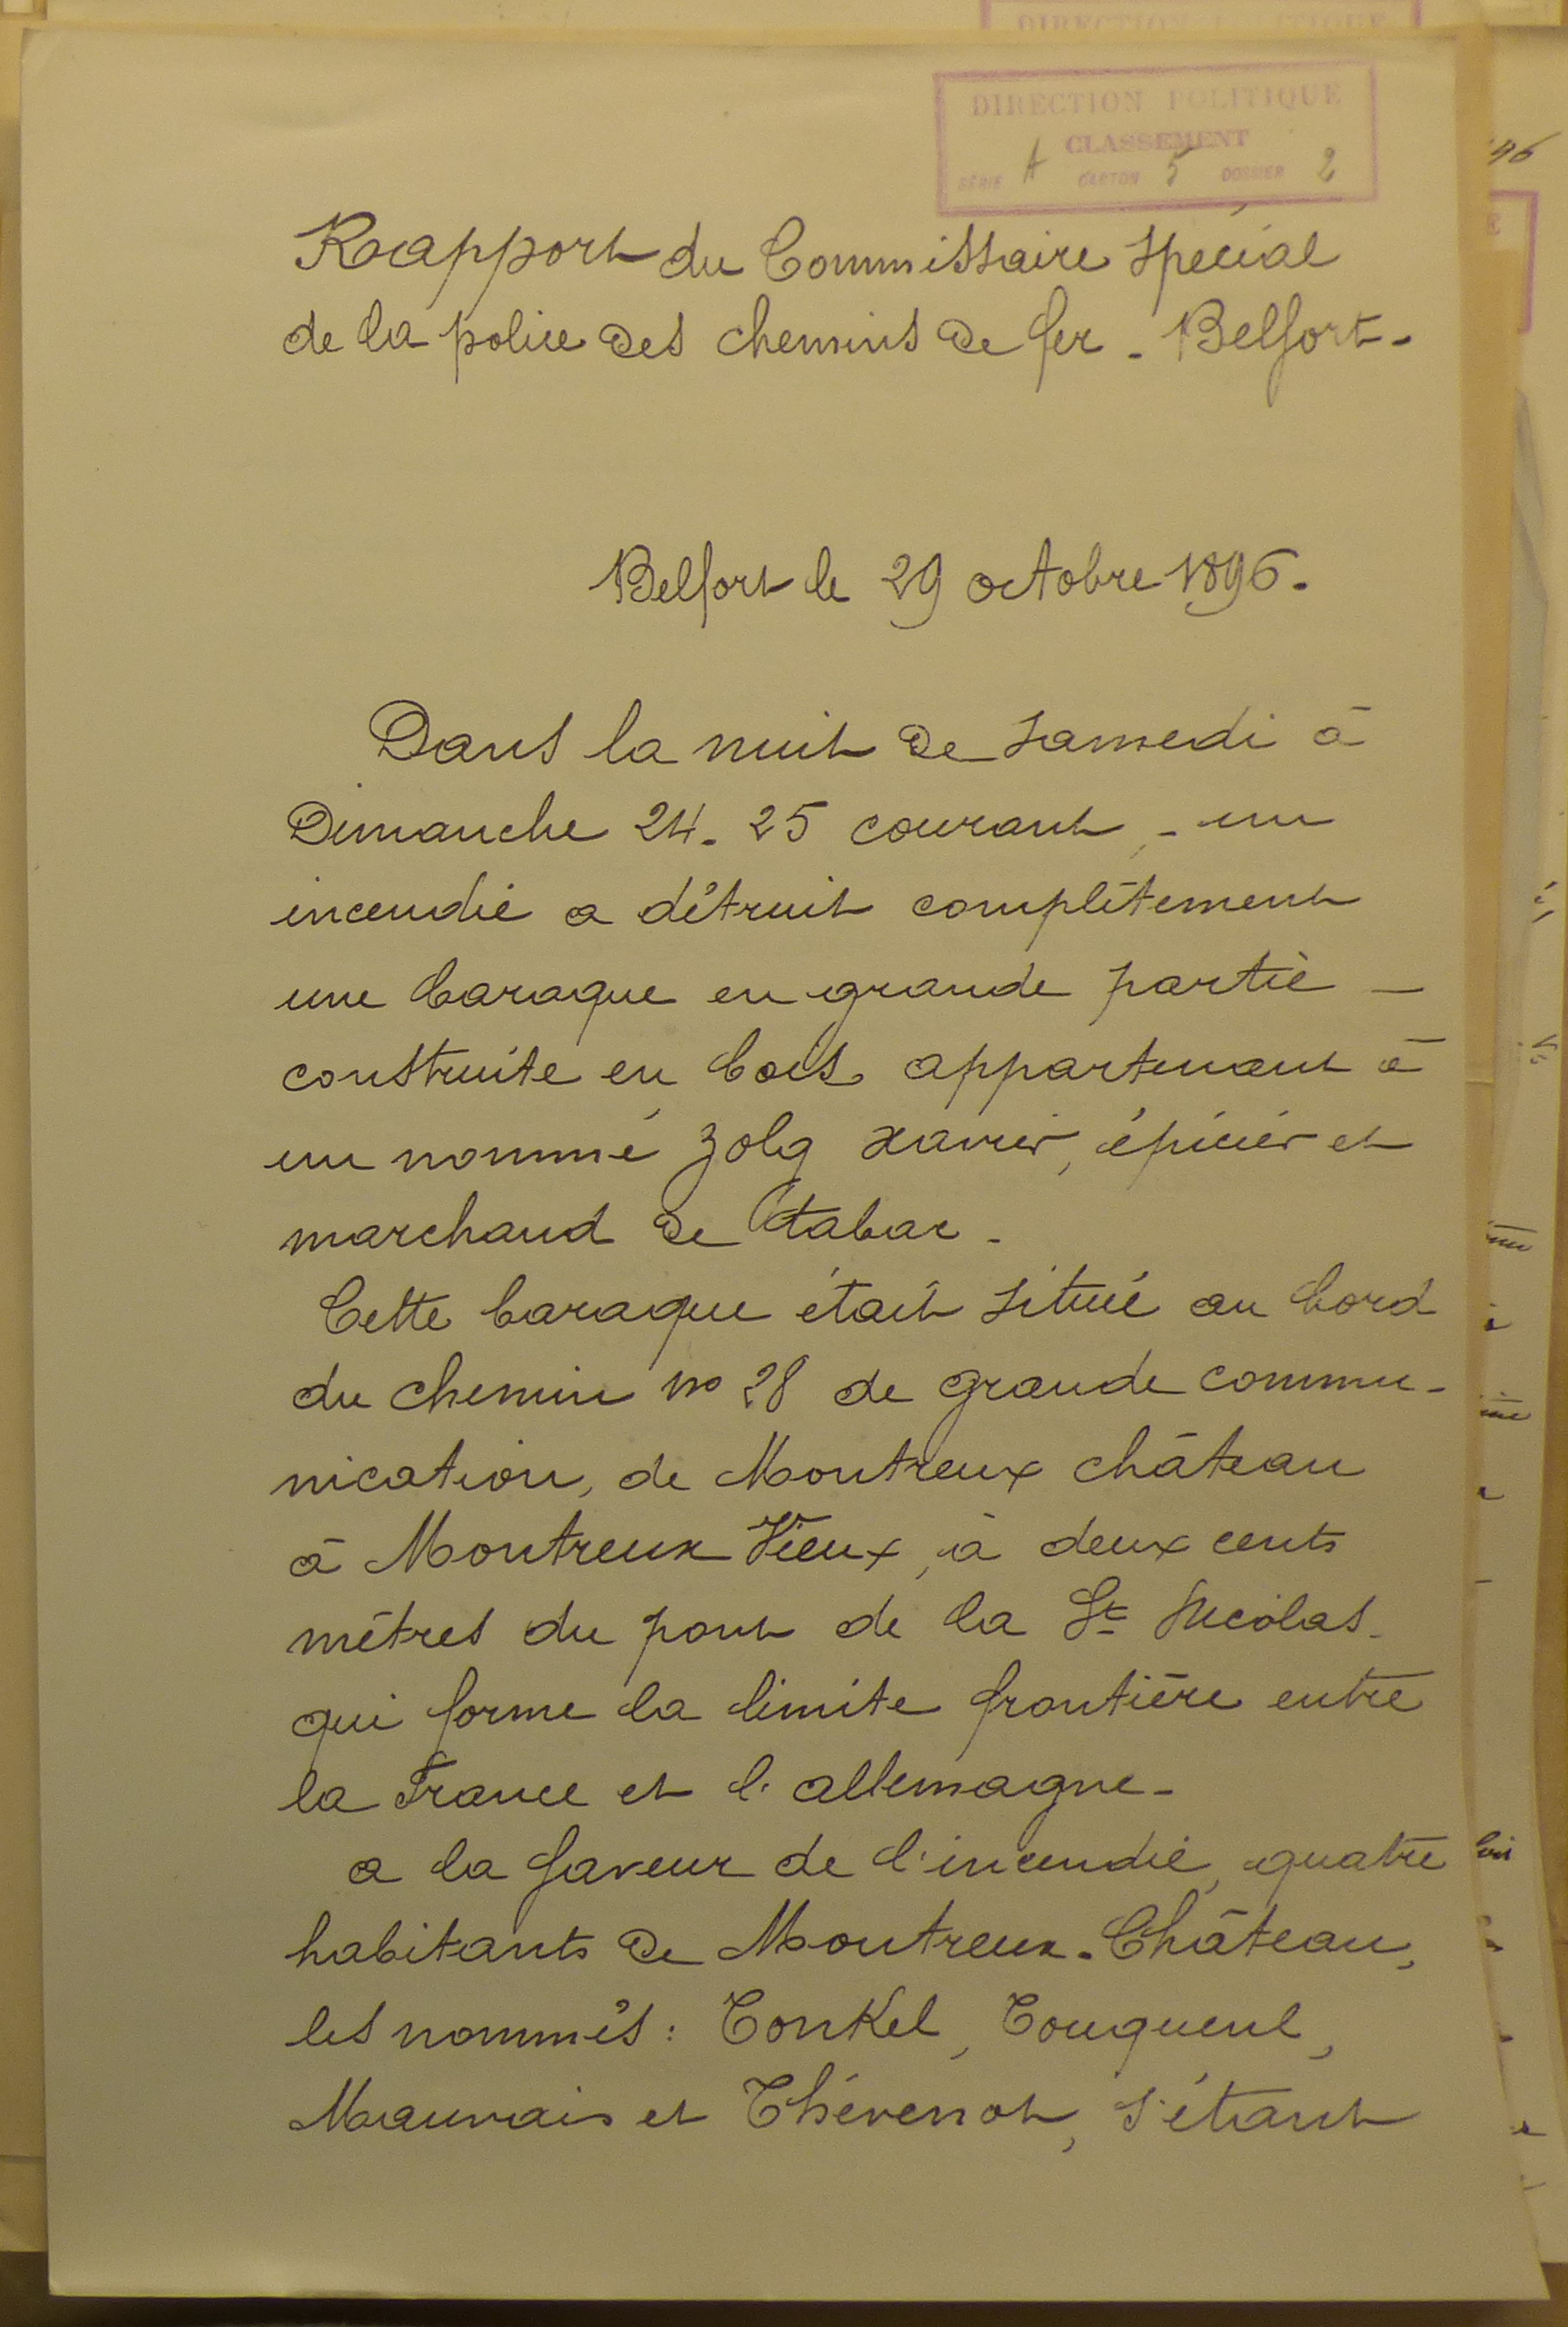 DIRECTION POLITIQUE
DIRECTION POLITIQUE
CLASSEMENT
SÉRIE A CARTON 5 DOSSIER 2
Rapport du Commissaire Spécial
de la police des chemins de fer - Belfort -
Belfort le 29 octobre 1896.
Dans la nuit de samedi à
Dimanche 24-25 courant, - un
incendie a détruit complètement
une baraque en grande partie -
construite en bois appartenant à
un nommé Zolg Xavier, épicier et
marchand de tabac -
Cette baraque était situé au bord
du chemin no 28 de grande commu-
nication, de Montreux château
à Montreux Vieux, à deux cents
mètres du pont de la St Nicolas -
qui forme la limite frontière entre
la France et l'allemagne -
a la faveur de l'incendie, quatre
habitants de Montreux-Château,
les nommés : Tonkel, Tougueul,
Mauvais et Thévenot, s'étant